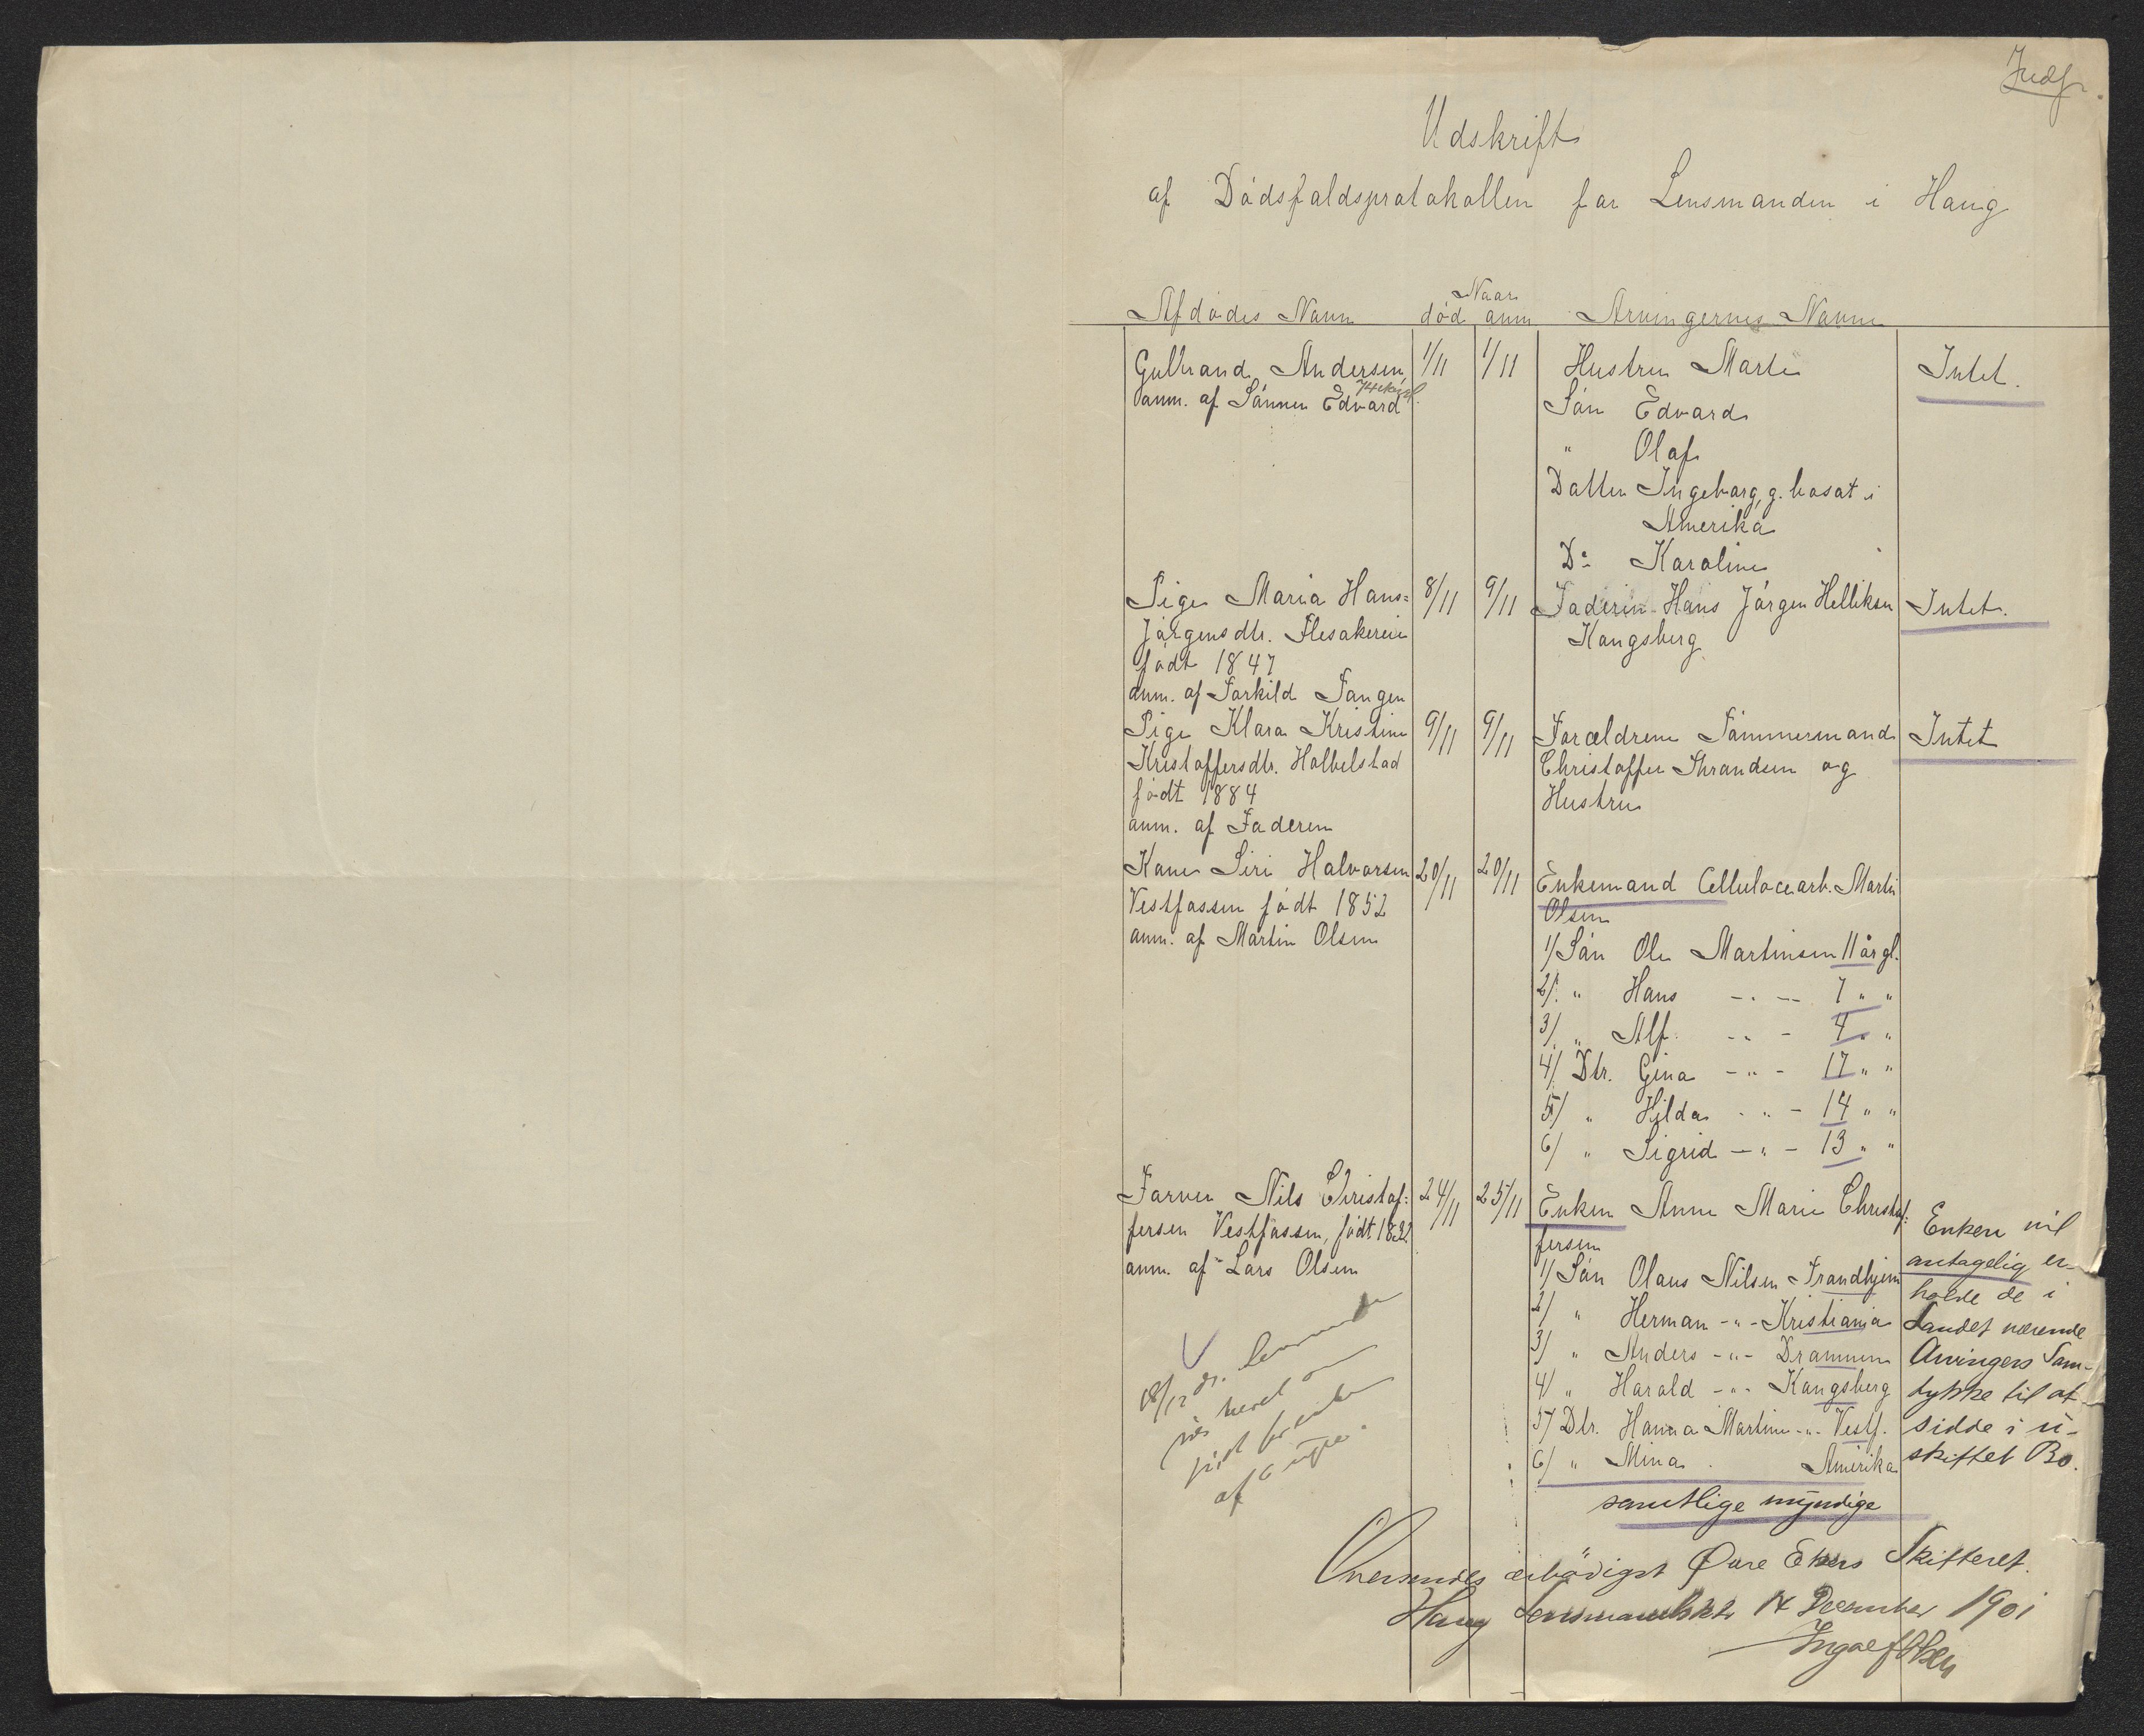 Indf.
Udskrift
af Dødsfaldsprotokollen for Lensmanden i Haug
Afdødes Navn
Naar
død anm
Arvingernes Navne
Gulbrand Andersen,
anm. af Sønnen Edvard
1/11 1/11
Hustru Marte
Søn Edvard
" Olaf
Datter Ingeborg, g. bosat i
Amerika
Do Karoline
Intet.
Pige Maria Hans=
Jørgensdtr. Flesakereie
født 1847
anm. af Torkild Fangen
8/11 9/11
Faderen Hans Jørgen Helliksen
Kongsberg
Intet.
Pige Klara Kristine
Kristoffersdtr. Holbelstad
født 1884
anm. af Faderen
9/11 9/11
Forældrene Tømmermand
Christoffer Thrandsen og
Hustru
Intet
Kone Siri Halvorsen
Vestfossen født 1852
anm. af Martin Olsen
20/11 20/11
Enkemand Cellulocearb. Martin
Olsen
1/ Søn Ole Martinsen 11 år gl.
2/ " Hans - " - 7 " "
3/ " Alf - " - 4 " "
4/ Dtr. Gina - " - 17 " "
5/ " Hilda - " - 14 " "
6/ " Sigrid - " - 13 " "
Farver Nils Christof=
fersen Vestfossen, født 1822
anm. af Lars Olsen
24/11 25/11
Enken Anne Marie Christof=
fersen
1/ Søn Olaus Nilsen Trondhjem
2/ " Herman - " - Kristiania
3/ " Anders - " - Drammen
4/ " Harald - " - Kongsberg
5/ Dtr. Hanna Martine - " - Vestf.
6/ " Mina Amerika
samtlige myndige
Enken vil
antagelig er-
holde de i
Landet værende
Arvingers Sam-
tykke til at
sidde i u-
skiftet Bo.
18/12
af
Oversendes ærbødigst Øvre Ekers Skifteret.
Haug Lensmandsktr 14 December 1901
Ingolf Olsen